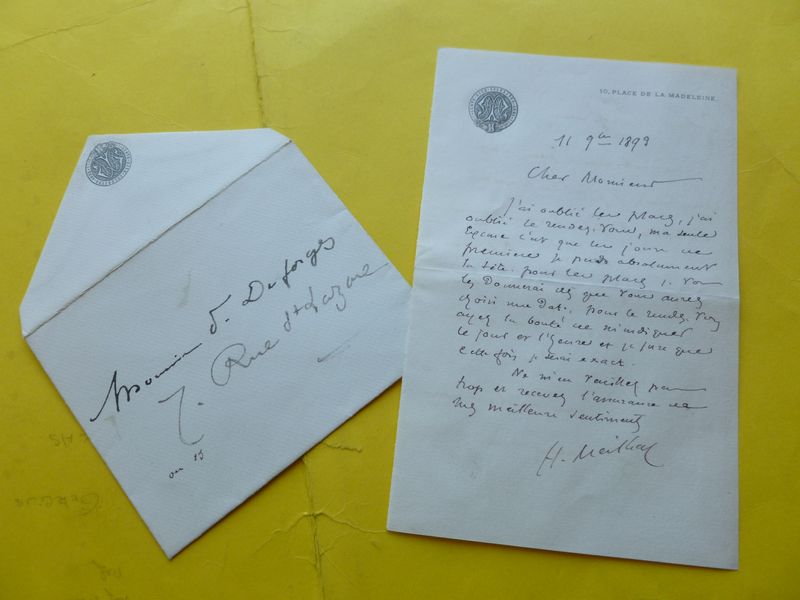 10, PLACE DE LA MADELEINE.
11 9bre 1892
Cher Monsieur
J'ai oublié les places, j'ai
oublié le rendez-vous, ma seule
excuse c'est que les jours de
première je perds absolument
la tête. pour les places je vous
les donnerai dès que vous aurez
choisi une date. pour le rendez-vous
ayez la bonté de m'indiquer
le jour et l'heure et je jure que
cette fois je serai exact.
Ne m'en veuillez pas
trop et recevez l'assurance de
mes meilleurs sentiments
H. Meilhac
Monsieur D. Deforges
7. Rue St Lazare
ou 15